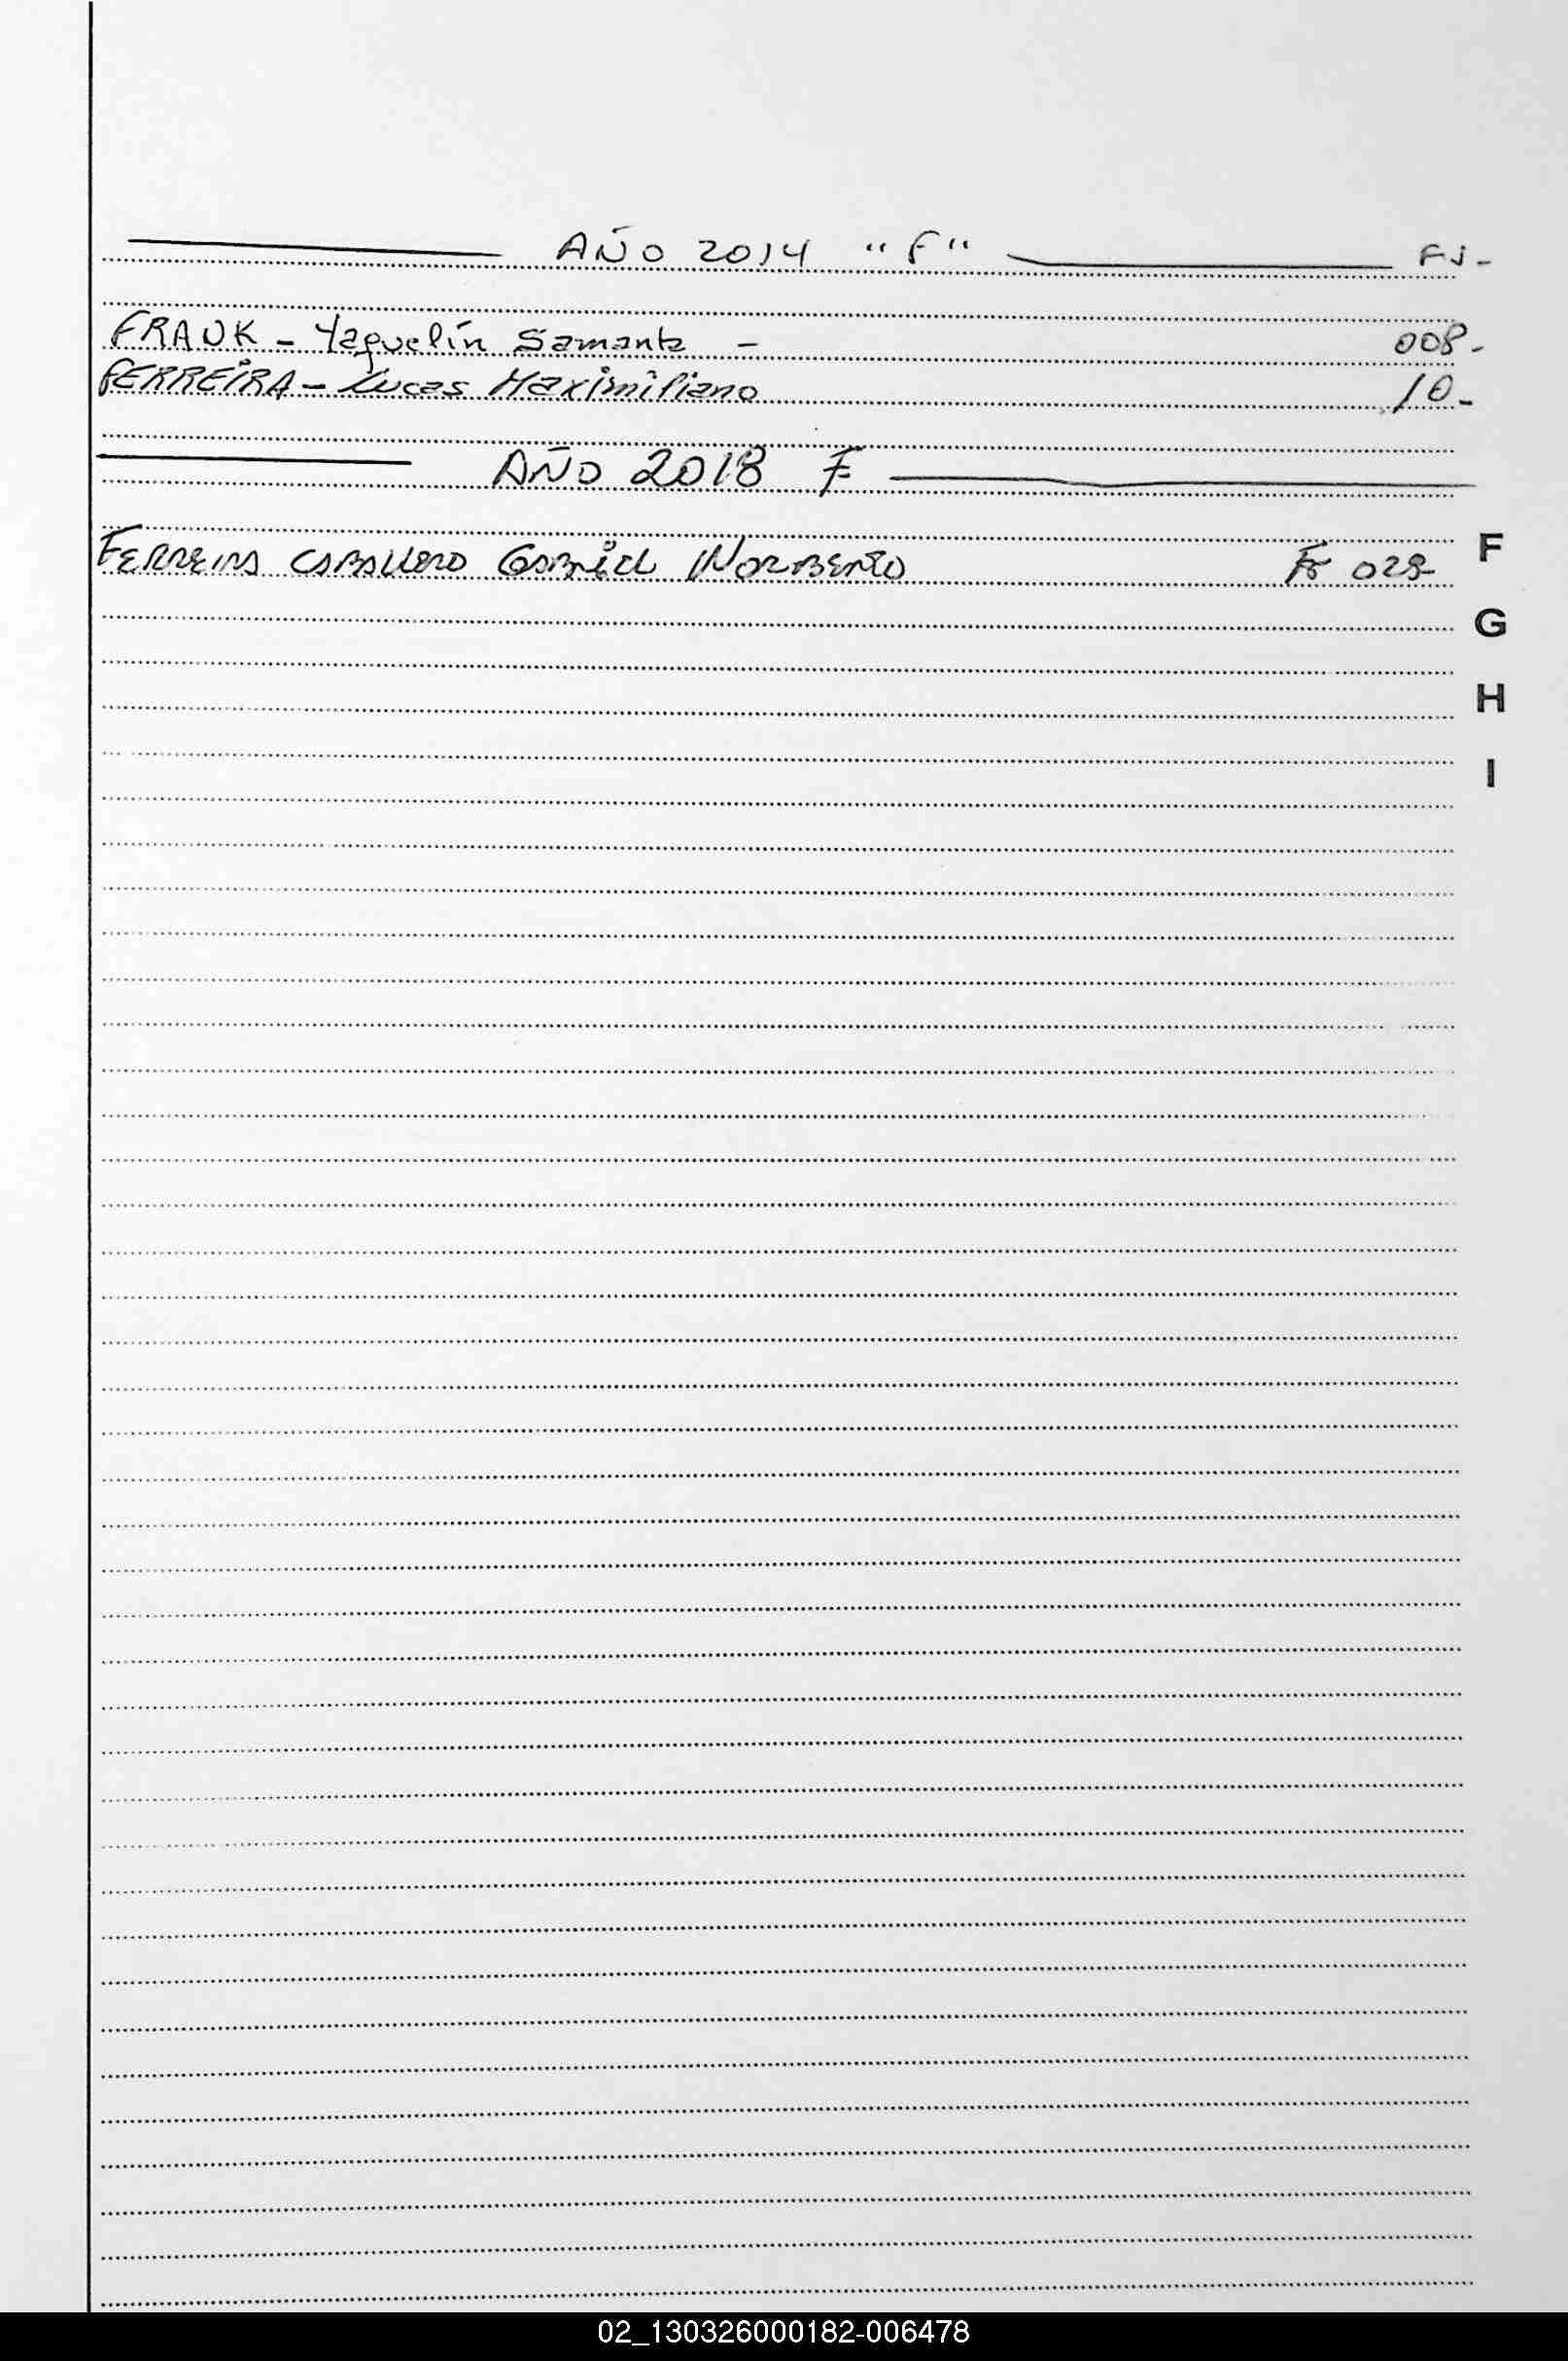 AÑO 2014 "F" FJ-
FRANK - Yaquelín Samanta - 008-
FERREIRA - Lucas Maximiliano 10-
AÑO 2018 F
FERREIRA CABALLERO GABRIEL NORBERTO Fº 028-
F
G
H
I
02_130326000182-006478